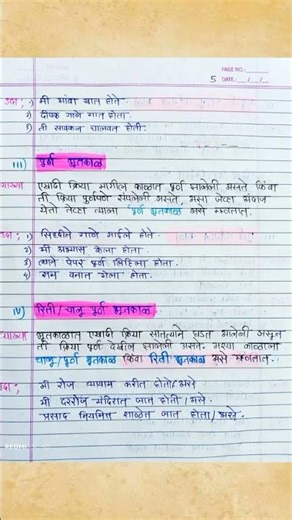 PAGE NO.
5 DATE: / /
उदा; 1) मी आंबा खात होते.
2) दीपक गाणे गात होता.
3) ती सायकल चालवत होती.
III) पूर्ण भूतकाळ
व्याख्या एखादी क्रिया मागील काळात पूर्ण झालेली असते किंवा
ती क्रिया पूर्णपणे संपलेली असते, असा जेव्हा अंदाज
येतो तेव्हा त्याला पूर्ण भूतकाळ असे म्हणतात.
उदा; 1) सिद्धीने गाणे गाईले होते.
2) मी अभ्यास केला होता.
3) त्याने पेपर पूर्ण लिहिला होता.
4) राम वनात गेला होता.
IV) रिती/चालू पूर्ण भूतकाळ
व्याख्या भूतकाळात एखादी क्रिया सातत्याने घडत आलेली असून
ती क्रिया पूर्ण देखील झालेली असते. अश्या काळाला
चालू/पूर्ण भूतकाळ किंवा रिती भूतकाळ असे म्हणतात.
उदा; मी रोज व्यायाम करीत होतो/असे
मी दररोज मंदिरात जात होतो/असे.
प्रसाद नियमित शाळेत जात होता/असे.